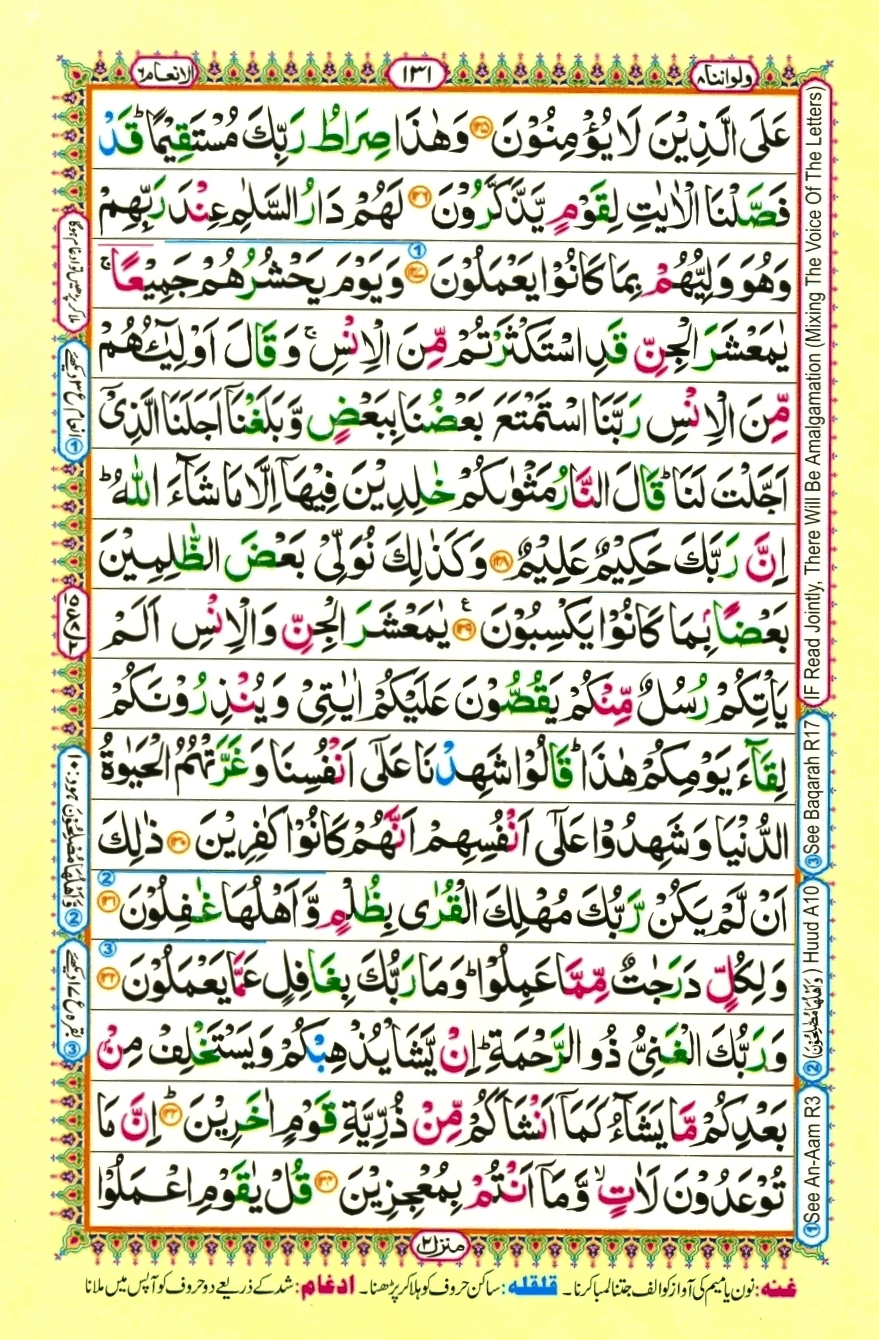 ولواننا ٨
١٣١
الانعام ٦
عَلَى الَّذِيْنَ لَا يُؤْمِنُوْنَ ﴿۱۲۵﴾ وَهٰذَا صِرَاطُ رَبِّكَ مُسْتَقِيْمًا ؕ قَدْ
فَصَّلْنَا الْاٰيٰتِ لِقَوْمٍ يَّذَّكَّرُوْنَ ﴿۱۲۶﴾ لَهُمْ دَارُ السَّلٰمِ عِنْدَ رَبِّهِمْ
وَهُوَ وَلِيُّهُمْ بِمَا كَانُوْا يَعْمَلُوْنَ ﴿۱۲۷﴾ وَيَوْمَ يَحْشُرُهُمْ جَمِيْعًا ۚ
يٰمَعْشَرَ الْجِنِّ قَدِ اسْتَكْثَرْتُمْ مِّنَ الْاِنْسِ ۚ وَقَالَ اَوْلِيٰٓـُٔهُمْ
مِّنَ الْاِنْسِ رَبَّنَا اسْتَمْتَعَ بَعْضُنَا بِبَعْضٍ وَّبَلَغْنَاۤ اَجَلَنَا الَّذِىْۤ
اَجَّلْتَ لَنَا ؕ قَالَ النَّارُ مَثْوٰٮكُمْ خٰلِدِيْنَ فِيْهَاۤ اِلَّا مَا شَآءَ اللّٰهُ ؕ
اِنَّ رَبَّكَ حَكِيْمٌ عَلِيْمٌ ﴿۱۲۸﴾ وَكَذٰلِكَ نُوَلِّىْ بَعْضَ الظّٰلِمِيْنَ
بَعْضًۢا بِمَا كَانُوْا يَكْسِبُوْنَ ﴿۱۲۹﴾ ع يٰمَعْشَرَ الْجِنِّ وَالْاِنْسِ اَلَمْ
يَاْتِكُمْ رُسُلٌ مِّنْكُمْ يَقُصُّوْنَ عَلَيْكُمْ اٰيٰتِىْ وَيُنْذِرُوْنَكُمْ
لِقَآءَ يَوْمِكُمْ هٰذَا ؕ قَالُوْا شَهِدْنَا عَلٰٓى اَنْفُسِنَا وَغَرَّتْهُمُ الْحَيٰوةُ
الدُّنْيَا وَشَهِدُوْا عَلٰٓى اَنْفُسِهِمْ اَنَّهُمْ كَانُوْا كٰفِرِيْنَ ﴿۱۳۰﴾ ذٰلِكَ
اَنْ لَّمْ يَكُنْ رَّبُّكَ مُهْلِكَ الْقُرٰى بِظُلْمٍ وَّاَهْلُهَا غٰفِلُوْنَ ﴿۱۳۱﴾
وَلِكُلٍّ دَرَجٰتٌ مِّمَّا عَمِلُوْا ؕ وَمَا رَبُّكَ بِغَافِلٍ عَمَّا يَعْمَلُوْنَ ﴿۱۳۲﴾
وَرَبُّكَ الْغَنِىُّ ذُو الرَّحْمَةِ ؕ اِنْ يَّشَاْ يُذْهِبْكُمْ وَيَسْتَخْلِفْ مِنْۢ
بَعْدِكُمْ مَّا يَشَآءُ كَمَاۤ اَنْشَاَكُمْ مِّنْ ذُرِّيَّةِ قَوْمٍ اٰخَرِيْنَ ؕ﴿۱۳۳﴾ اِنَّ مَا
تُوْعَدُوْنَ لَاٰتٍ ۙ وَّمَاۤ اَنْتُمْ بِمُعْجِزِيْنَ ﴿۱۳۴﴾ قُلْ يٰقَوْمِ اعْمَلُوْا
منزل ٢
IF Read Jointly, There Will Be Amalgamation (Mixing The Voice Of The Letters)
③ See Baqarah R17
② (وَاَهْلُهَا مُصْلِحُوْنَ) Huud A10
① See An-Aam R3
ملا کر پڑھیں تو ادغام ہوگا
① انعام ع ٣ دیکھئے
② وَاَهْلُهَا مُصْلِحُوْنَ ہود: ۱۰
غنہ: نون یا میم کی آواز کو الف جتنا لمبا کرنا۔ قلقلہ: ساکن حروف کو ہلا کر پڑھنا۔ ادغام: شد کے ذریعے دو حروف کو آپس میں ملانا